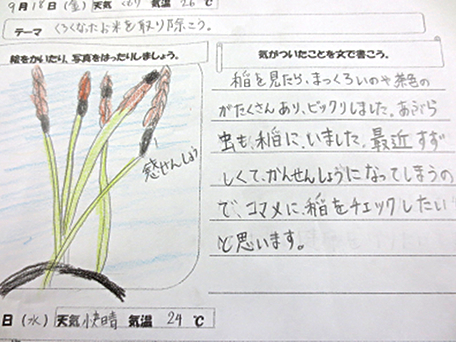 9月18日(金) 天気 くもり 気温 26℃
テーマ くろくなったお米を取り除こう。
絵をかいたり、写真をはったりしましょう。
感せんしょう
気がついたことを文で書こう。
稲を見たら、まっくろいのや茶色の
がたくさんあり、ビックリしました。あぶら
虫も稲に、いました。最近すず
しくて、かんせんしょうになってしまうの
で、コマメに、稲をチェックしたい
と思います。
日(水) 天気 快晴 気温 24℃